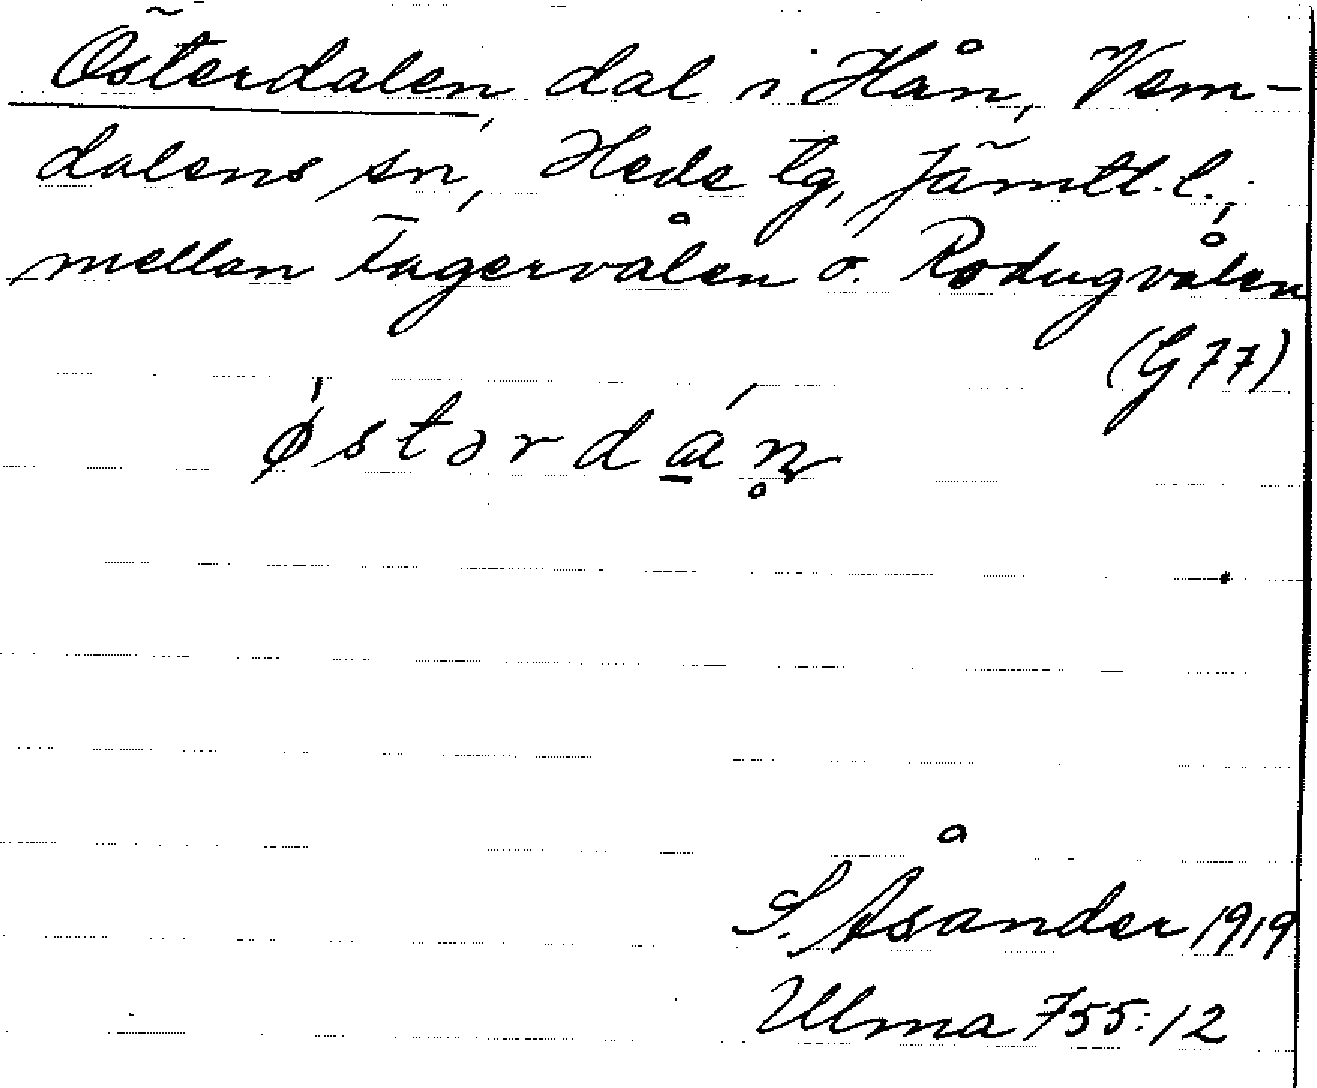 Österdalen, dal i Hån, Vem-
dalens sn, Hede tg, Jämtl. l.,
mellan Fagervålen o. Rodugvålen
(G 77)
S. Åsander 1919
Ulma 755:12